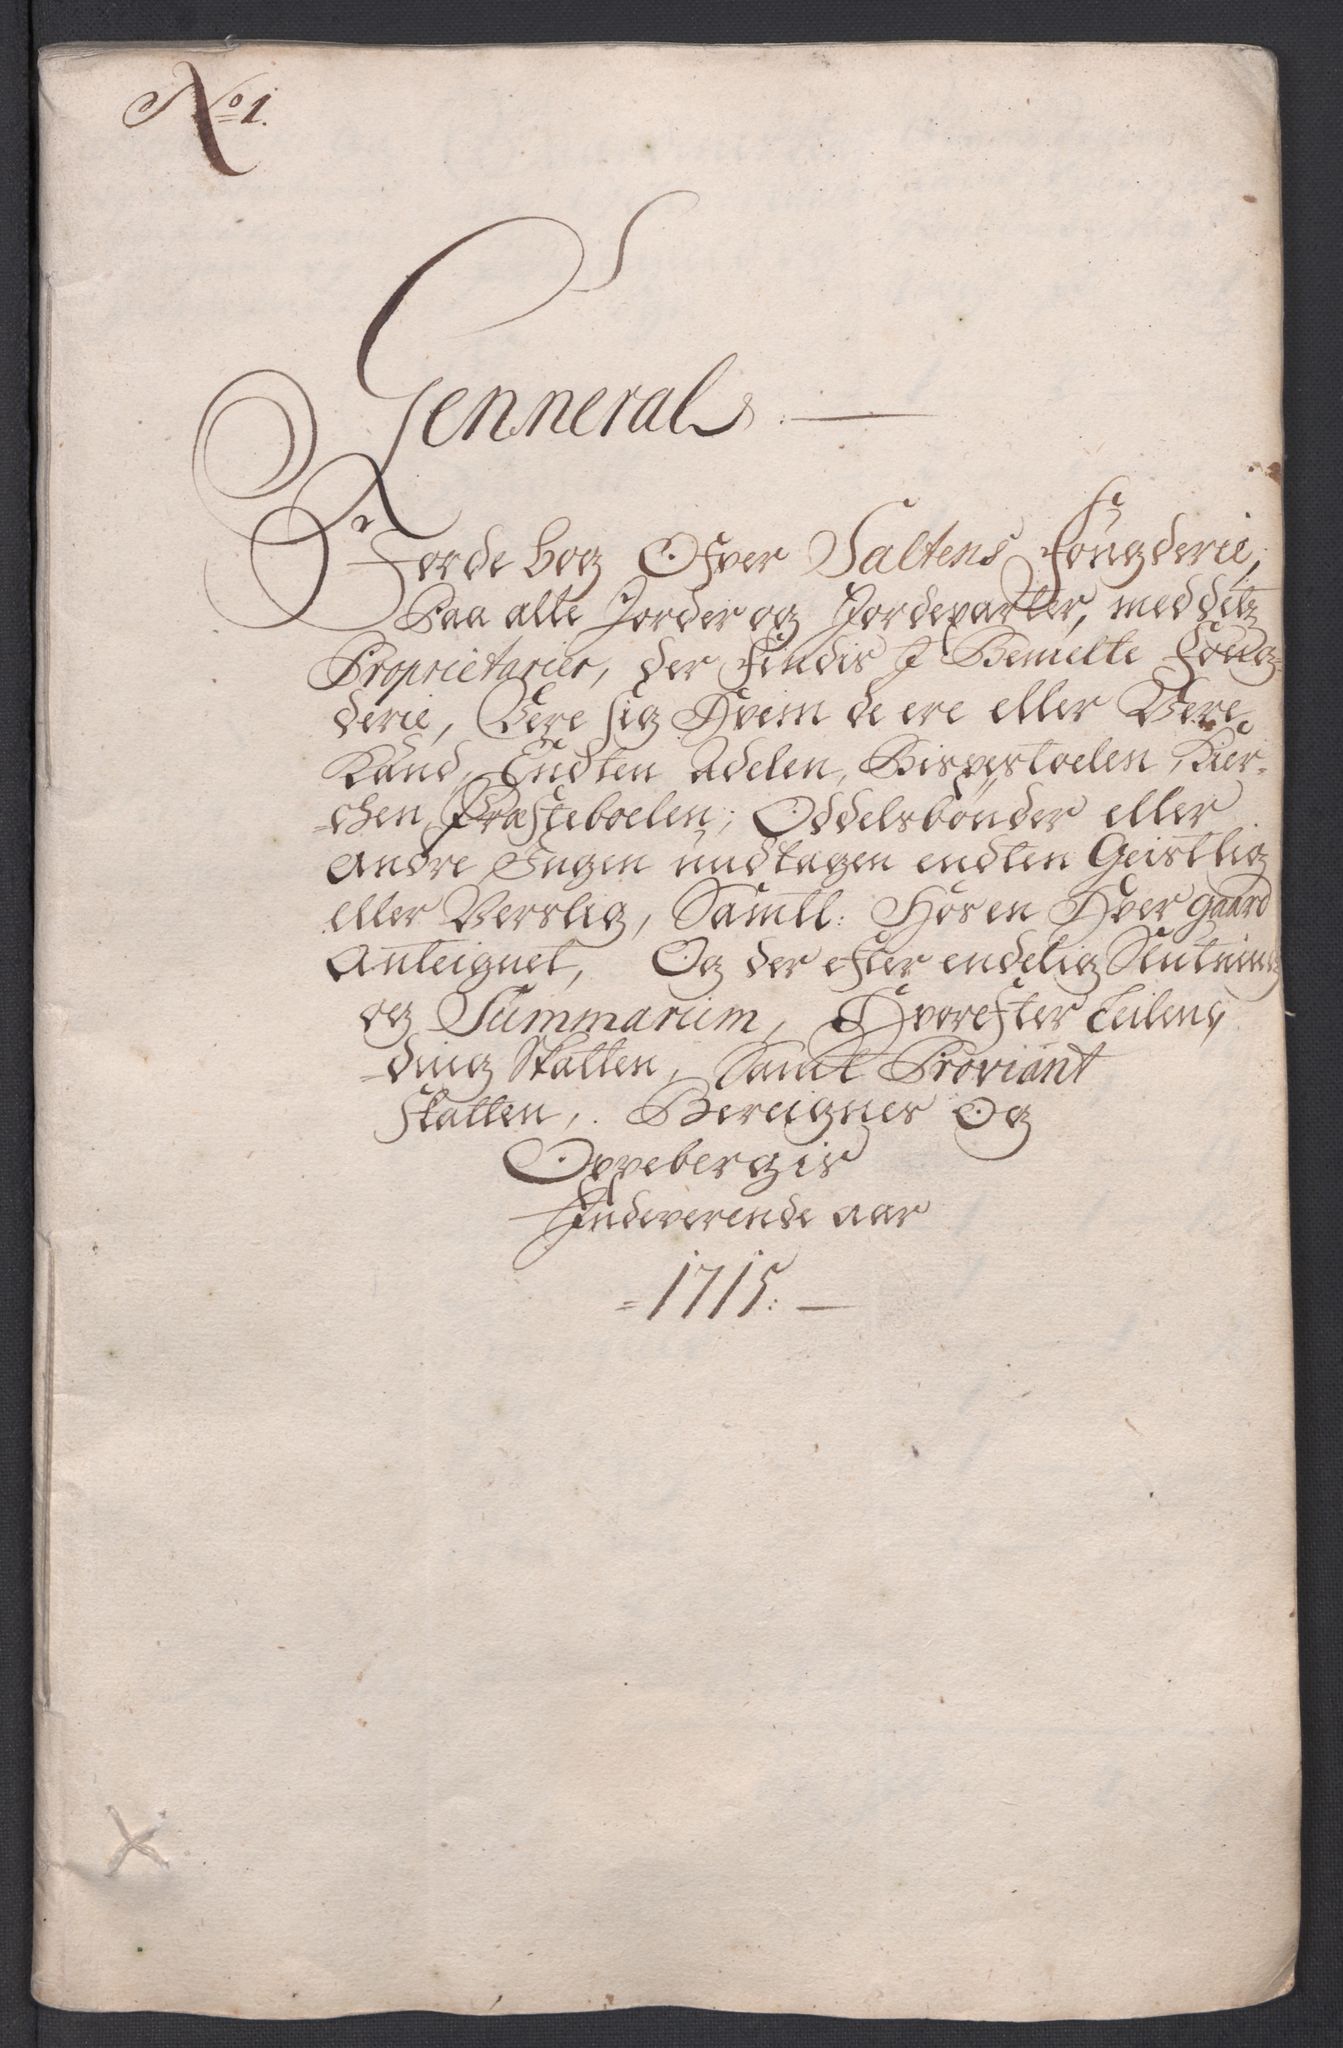 No 1.
Genneral
Jordebog Ofver Saltens Fougderie,
Paa alle Jorder og Jordeparter, med deis
Proprietarier, der findis J Bemelte Foug-
derie, Være sig Hvem de ere eller Være
Kand, Endten Adelen, Bispestoelen, Kier-
=chen, Præsteboelen, Oddelsbønder eller
Andre Ingen undtagen endten Geistlig
eller Verslig, Samtl: Hos en Hver gaard
Anteignet, Og der efter endelig
og Summarium, Hvorefter Leilen-
=ding Skatten, Samt Proviant
skatten, Bereignes Og
Oppebergis
Indeverende aar
=1715: